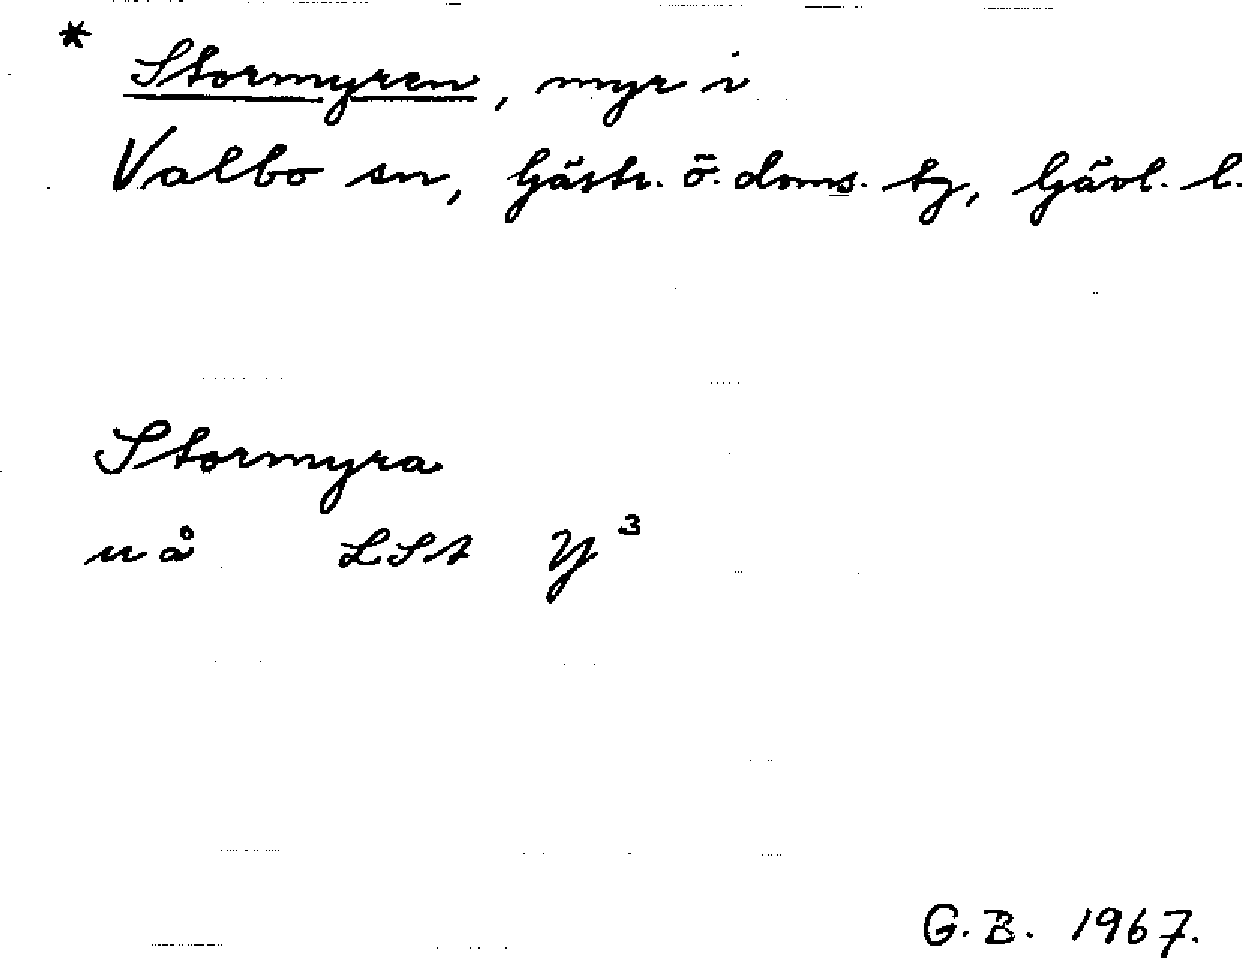 * Stormyren, myr i
Valbo sn, Gästr. ö. doms. tg, Gävl. l.
Stormyra
u å LSt Y³
G. B. 1967.